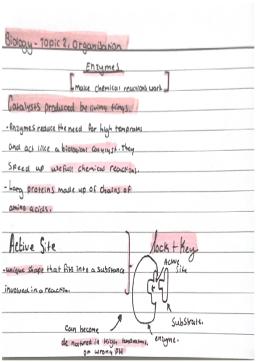 Biology - Topic 2, Organisation
Enzymes
[make chemical reactions work]
Catalysts produced by living things.
- Enzymes reduce the need for high
and act like a biological catalyst. They
speed up usefull chemical reactions.
- Long proteins made up of chains of
amino acids.
Active Site
- unique shape that fits into a substance
involved in a reaction.
lock + key
Active
site
Substrate.
enzyme.
Can become
denatured in high
or wrong PH